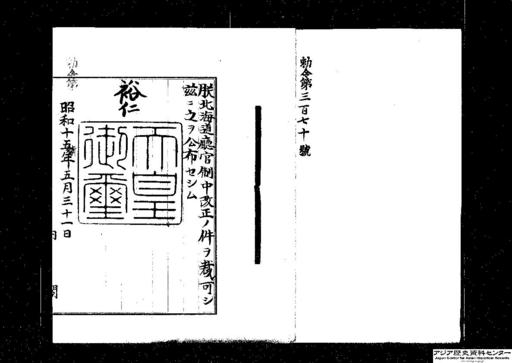 勅令第三百七十號
朕北海道廳官制中改正ノ件ヲ裁可シ
茲ニ之ヲ公布セシム
裕仁
天皇
御璽
昭和十五年五月三十一日
内閣
勅令第
アジア歴史資料センター
Japan Center for Asian Historical Records